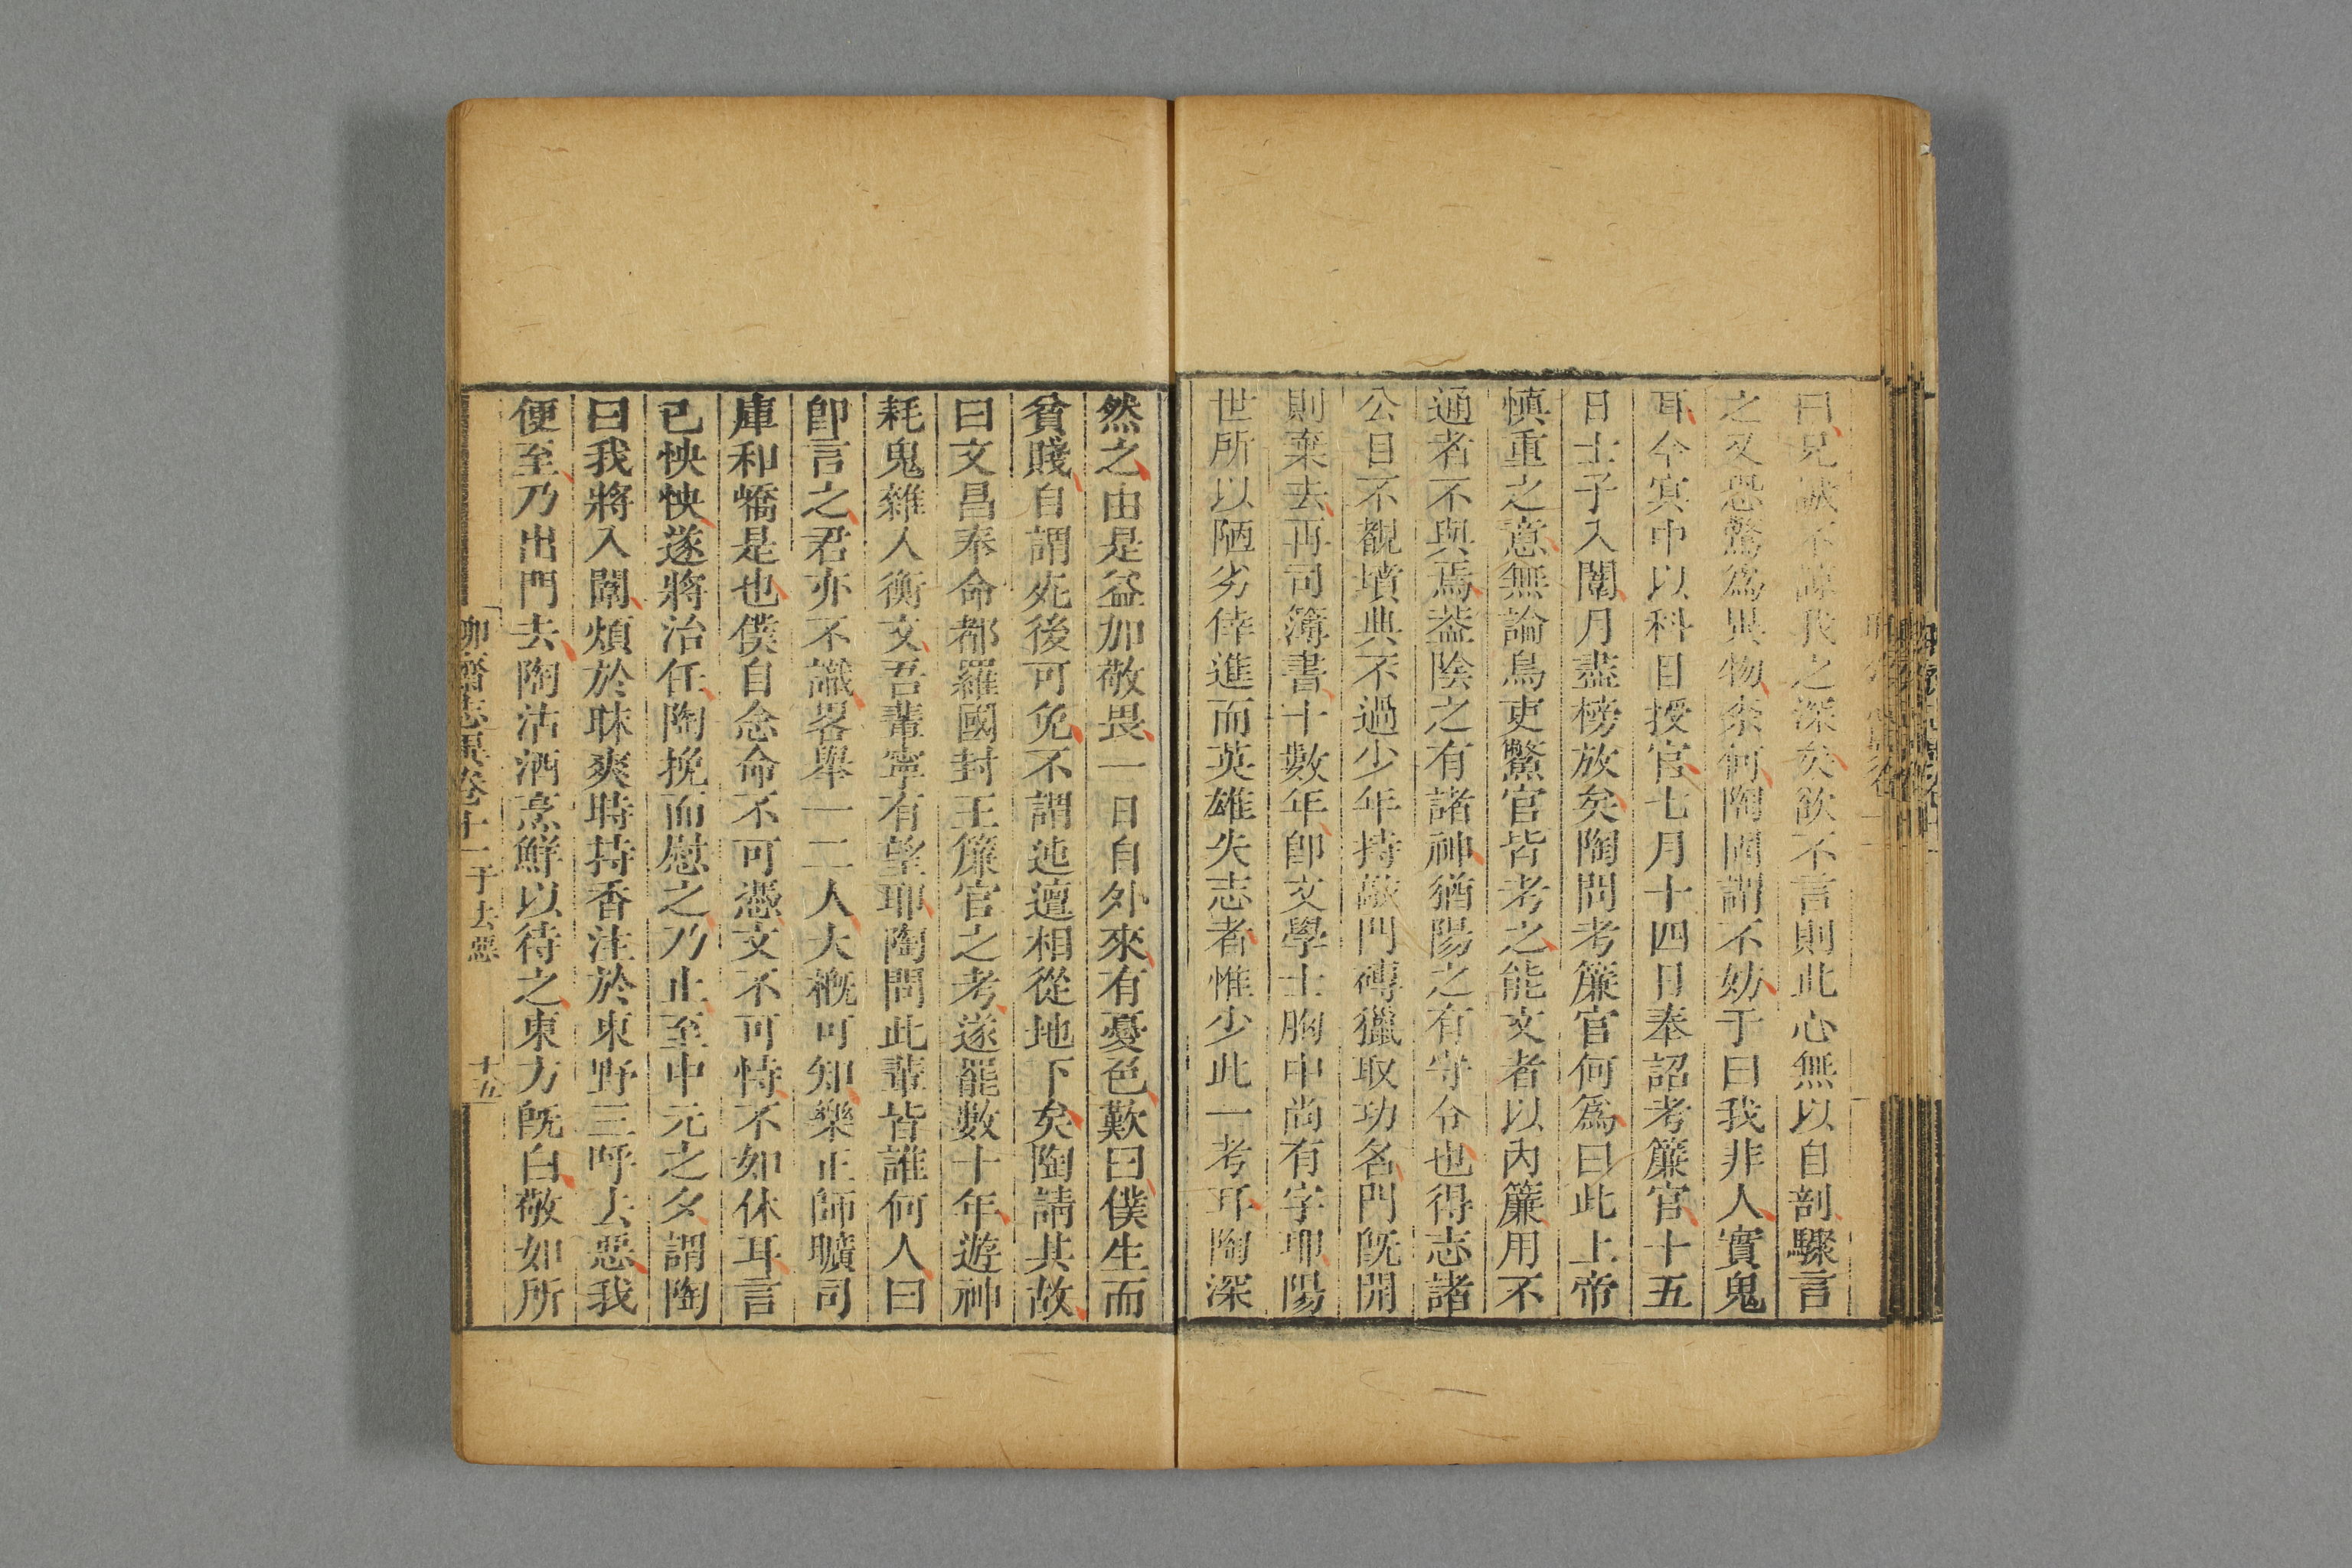 曰兄誠不諒我之深矣欲不言則此心無以自剖驟言
之又恐驚爲異物柰何陶固謂不妨于曰我非人實鬼
耳今冥中以科目授官七月十四日奉詔考簾官十五
日士子入闈月盡榜放矣陶問考簾官何爲曰此上帝
慎重之意無論鳥吏鱉官皆考之能文者以內簾用不
通者不與焉葢陰之有諸神猶陽之有守令也得志諸
公目不覩墳典不過少年持敲門磚獵取功名門旣開
則棄去再司簿書十數年卽文學士胸中尚有字耶陽
世所以陋劣倖進而英雄失志者惟少此一考耳陶深
然之由是益加敬畏一日自外來有憂色歎曰僕生而
貧賤自謂死後可免不謂迍邅相從地下矣陶請其故
曰文昌奉命都羅國封王簾官之考遂罷數十年遊神
耗鬼雜入衡文吾輩寧有望耶陶問此輩皆誰何人曰
卽言之君亦不識畧舉一二人大槪可知樂正師曠司
庫和嶠是也僕自念命不可憑文不可恃不如休耳言
已怏怏遂將治任陶挽而慰之乃止至中元之夕謂陶
曰我將入闈煩於昧爽時持香炷於東野三呼去惡我
便至乃出門去陶沽酒烹鮮以待之東方旣白敬如所
聊齋志異卷十一 于去惡 十五